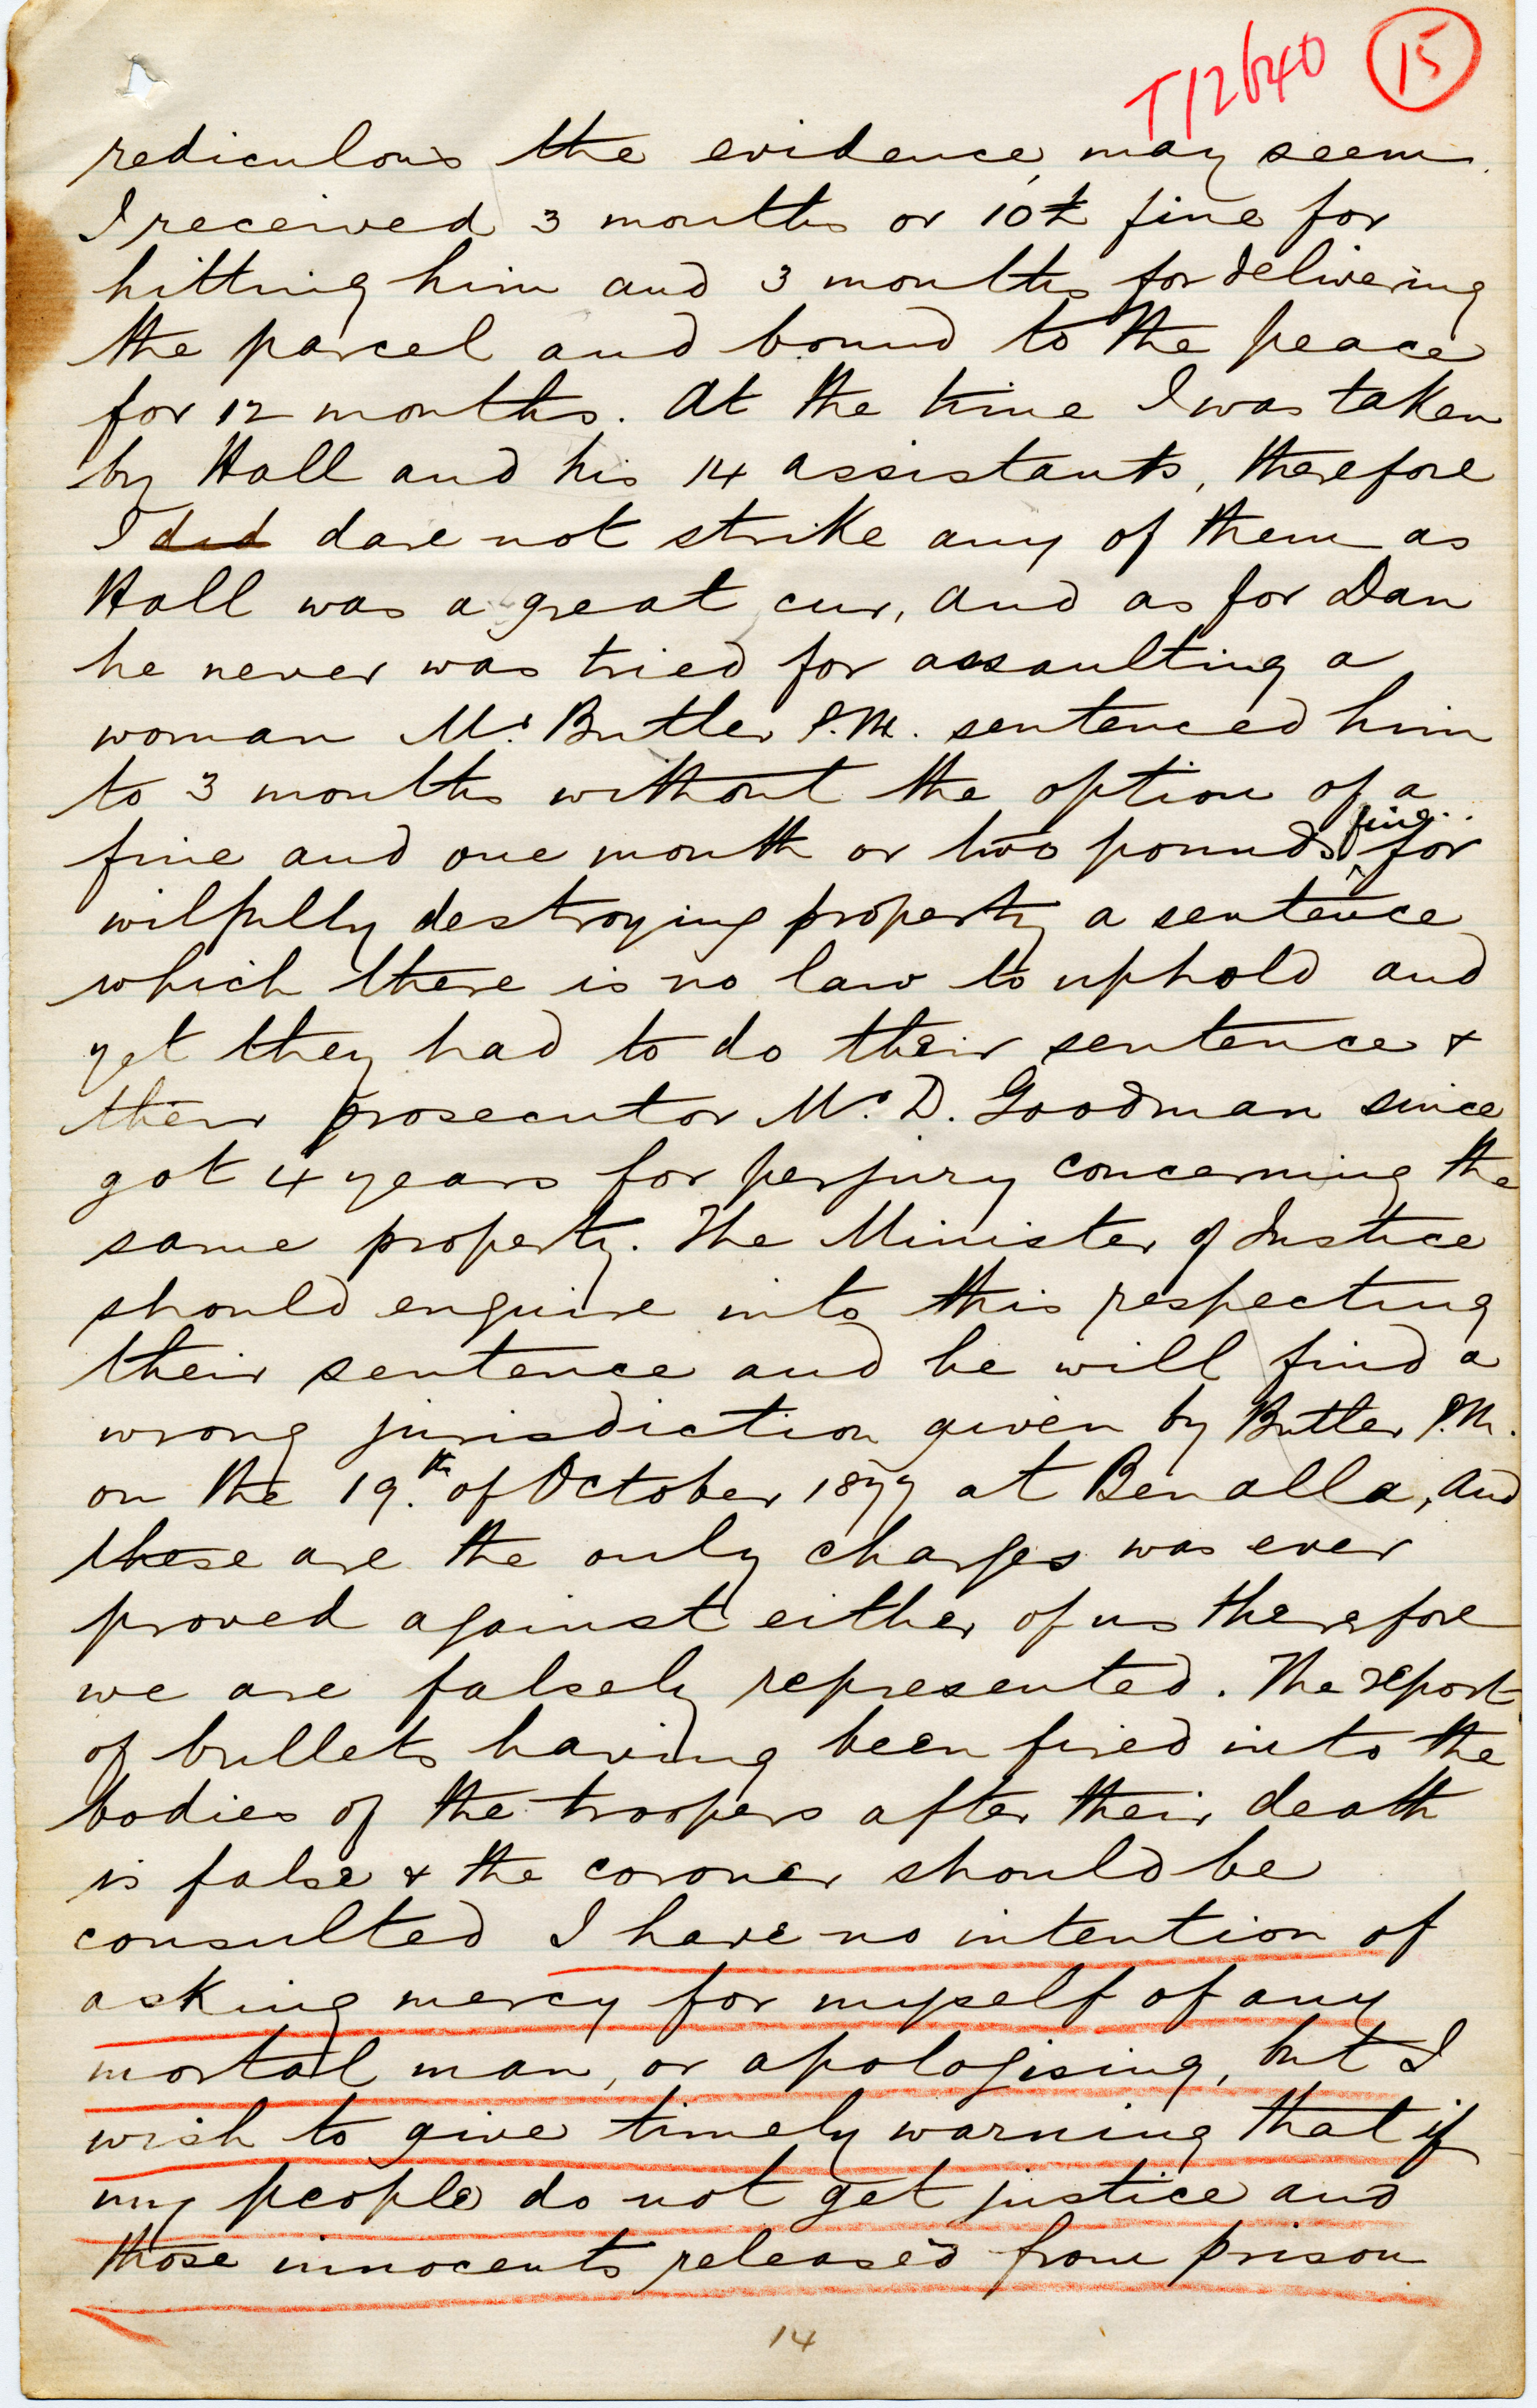 T12640 15
rediculous the evidence may seem.
I received 3 months or 10£ fine for
hitting him and 3 months for delivering
the parcel and bound to the peace
for 12 months. At the time I was taken
by Hall and his 14 assistants, therefore
I did dare not strike any of them as
Hall was a great cur, and as for Dan
he never was tried for assaulting a
woman Mr. Butler P.M. sentenced him
to 3 months without the option of a
fine and one month or two pounds fine for
wilfully destroying property a sentence
which there is no law to uphold and
yet they had to do their sentence &
their prosecutor Mr. D. Goodman since
got 4 years for perjury concerning the
same property. The Minister of Justice
should enquire into this respecting
their sentence and he will find a
wrong jurisdiction given by Butler P.M.
on the 19.th of October 1877 at Benalla, and
these are the only charges was ever
proved against either of us therefore
we are falsely represented. The report
of bullets having been fired into the
bodies of the troopers after their death
is false & the coroner should be
consulted I have no intention of
asking mercy for myself of any
mortal man, or apologising, but I
wish to give timely warning that if
my people do not get justice and
those innocents released from prison
14